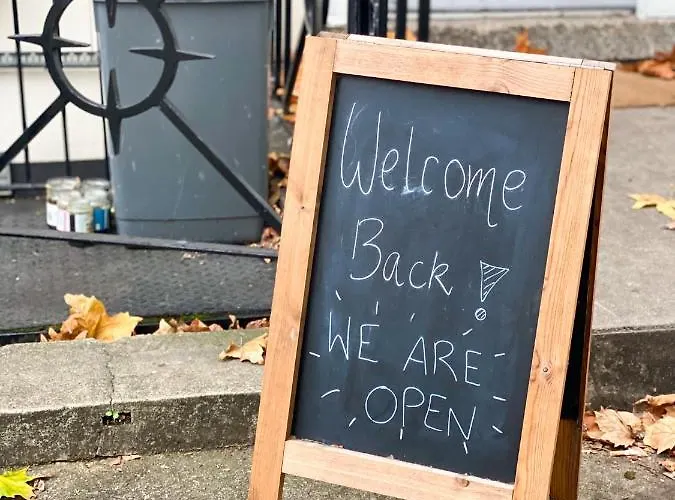 Welcome
Back!
WE ARE
OPEN